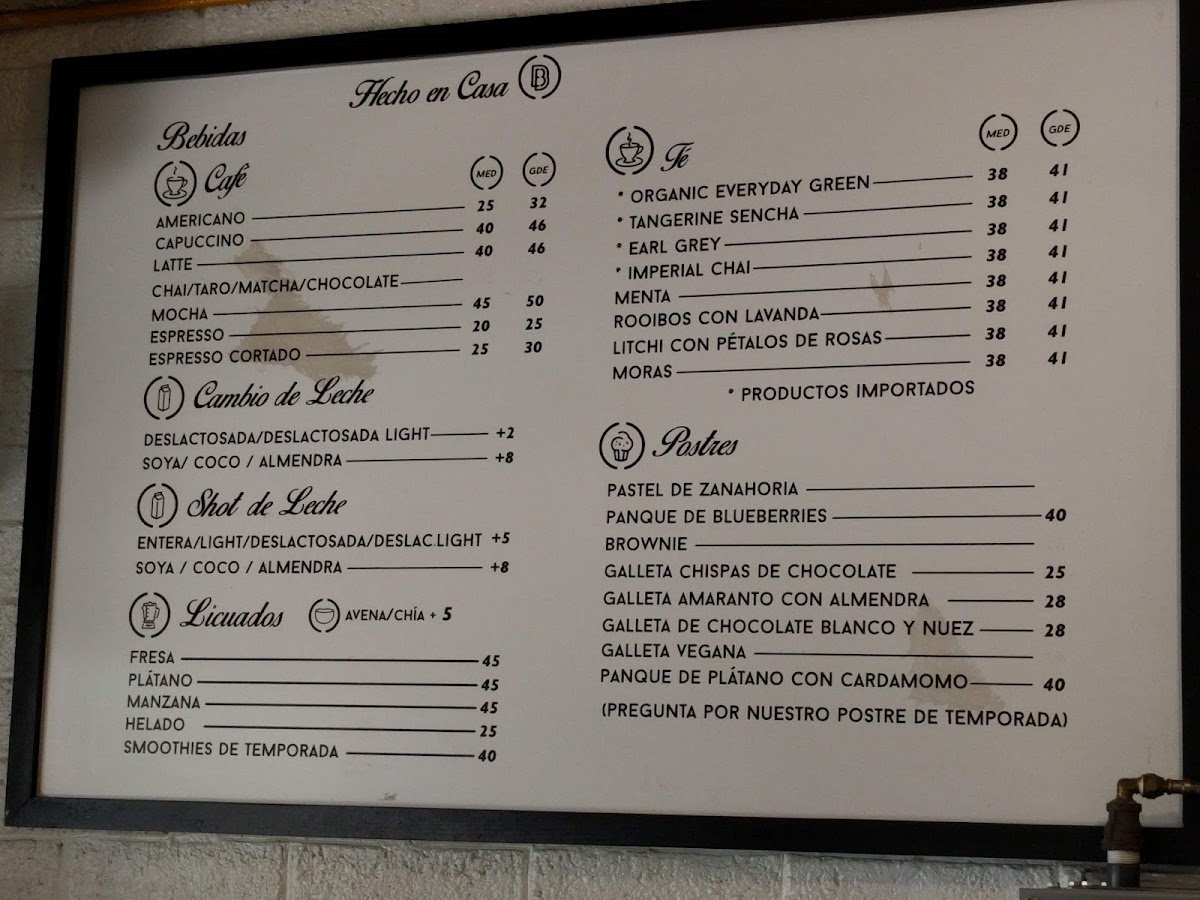 Hecho en Casa B
Bebidas
Café MED GDE
AMERICANO 25 32
CAPUCCINO 40 46
LATTE 40 46
CHAI/TARO/MATCHA/CHOCOLATE
MOCHA 45 50
ESPRESSO 20 25
ESPRESSO CORTADO 25 30
Cambio de Leche
DESLACTOSADA/DESLACTOSADA LIGHT +2
SOYA/ COCO / ALMENDRA +8
Shot de Leche
ENTERA/LIGHT/DESLACTOSADA/DESLAC.LIGHT +5
SOYA / COCO / ALMENDRA +8
Licuados AVENA/CHÍA + 5
FRESA 45
PLÁTANO 45
MANZANA 45
HELADO 25
SMOOTHIES DE TEMPORADA 40
Té MED GDE
* ORGANIC EVERYDAY GREEN 38 41
* TANGERINE SENCHA 38 41
* EARL GREY 38 41
* IMPERIAL CHAI 38 41
MENTA 38 41
ROOIBOS CON LAVANDA 38 41
LITCHI CON PÉTALOS DE ROSAS 38 41
MORAS 38 41
* PRODUCTOS IMPORTADOS
Postres
PASTEL DE ZANAHORIA
PANQUE DE BLUEBERRIES 40
BROWNIE
GALLETA CHISPAS DE CHOCOLATE 25
GALLETA AMARANTO CON ALMENDRA 28
GALLETA DE CHOCOLATE BLANCO Y NUEZ 28
GALLETA VEGANA
PANQUE DE PLÁTANO CON CARDAMOMO 40
(PREGUNTA POR NUESTRO POSTRE DE TEMPORADA)